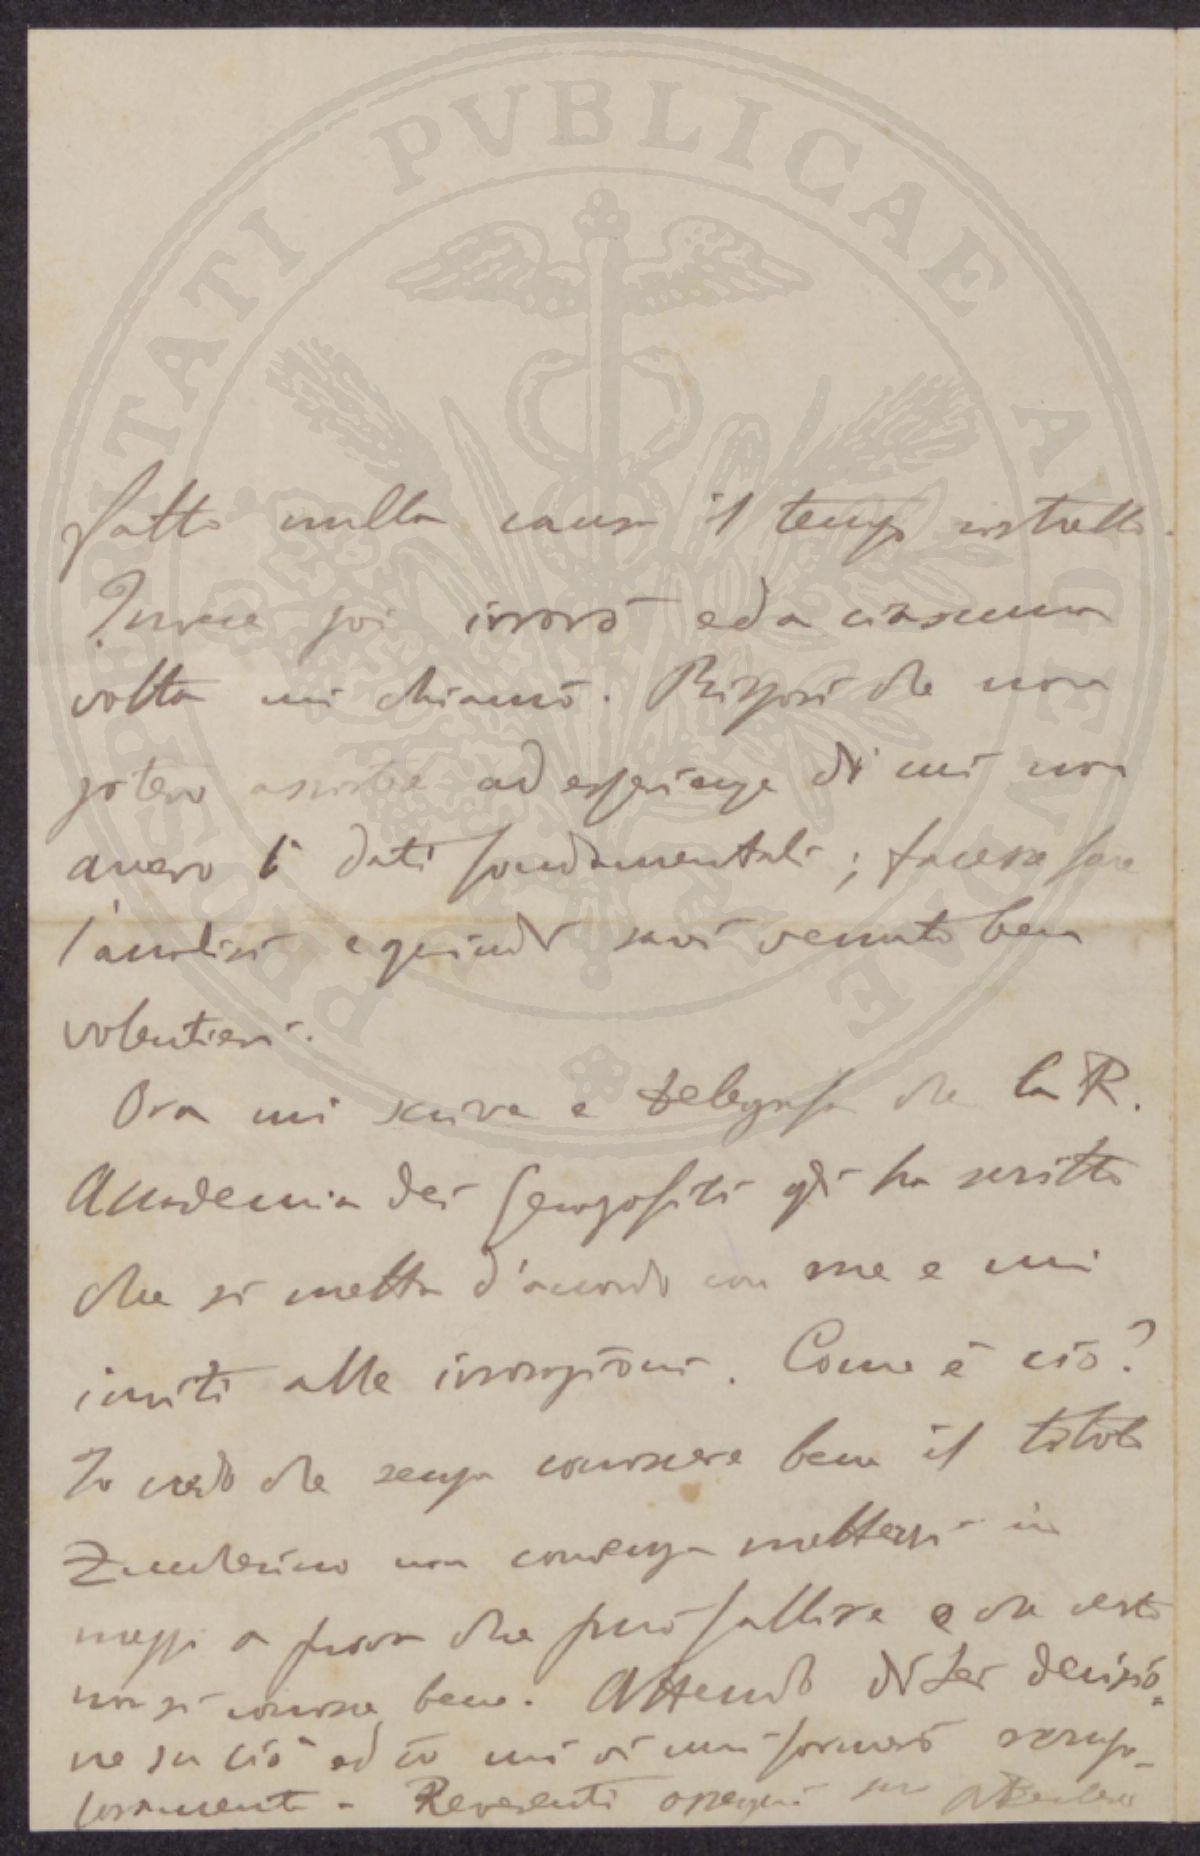 PROSPERITATI PVBLICAE AVGENDAE
fatto nulla causa il tempo ristretto.
Invece poi irrorò ed a ciascuna
volta mi chiamò. Risposi che non
potevo assistere ad esperienze di cui non
avevo i dati fondamentali; facesse fare
l'analisi e quindi sarei venuto ben
volentieri.
Ora mi scrive e telegrafa che la R.
Accademia dei Georgofili gli ha scritto
che si metta d'accordo con me e mi
inviti alle irrorazioni. Come è ciò?
Io credo che senza conoscere bene il titolo
non convenga mettersi in
mezzo a prova che può fallire e che certo
non si conosce bene. Attendo di Lei decisio=
ne su ciò ed io mi vi uniformerò scrupo-
losamente - Reverenti ossequi suo